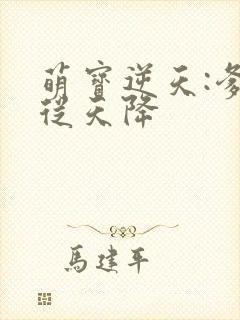 萌寶逆天:
從天降
馬建平